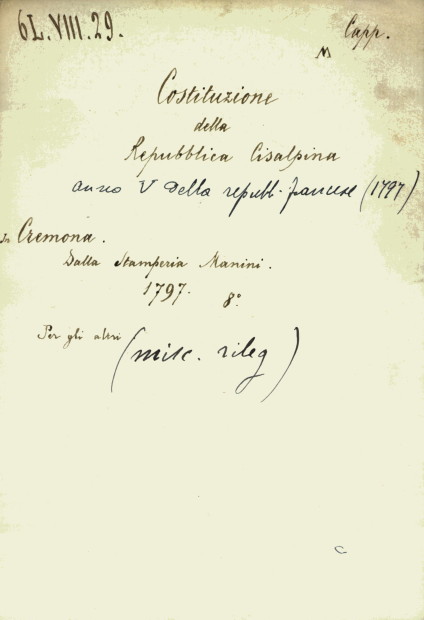 6L.VIII.29.
Capp.
M
Costituzione
della
Repubblica Cisalpina
anno V della repubbl. francese (1797)
In Cremona.
Dalla Stamperia Manini.
1797. 8°
Per gli altri
(misc. rileg)
C